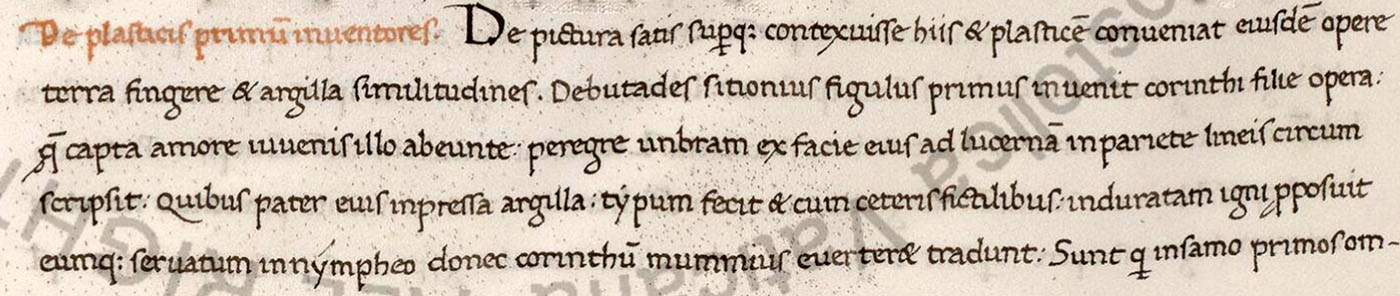 De plasticis primū inuentores. De pictura satis suꝑq: contexuisse hiis & plasticē conueniat eiusdē opere
terra fingere & argilla similitudines. Debutades sitionius figulus primus inuenit corinthi filie opera:
q̄ capta amore iuuenis illo abeunte: peregre unbram ex facie eius ad lucernā in pariete lineis circum
scripsit: Quibus pater eius inpressa argilla: tẏpum fecit & cum ceteris fictilibus: induratam igni ꝓposuit
eumq: seruatum in nẏmpheo donec corinthū mummius euerter& tradunt: Sunt ꝗ in samo primos om-